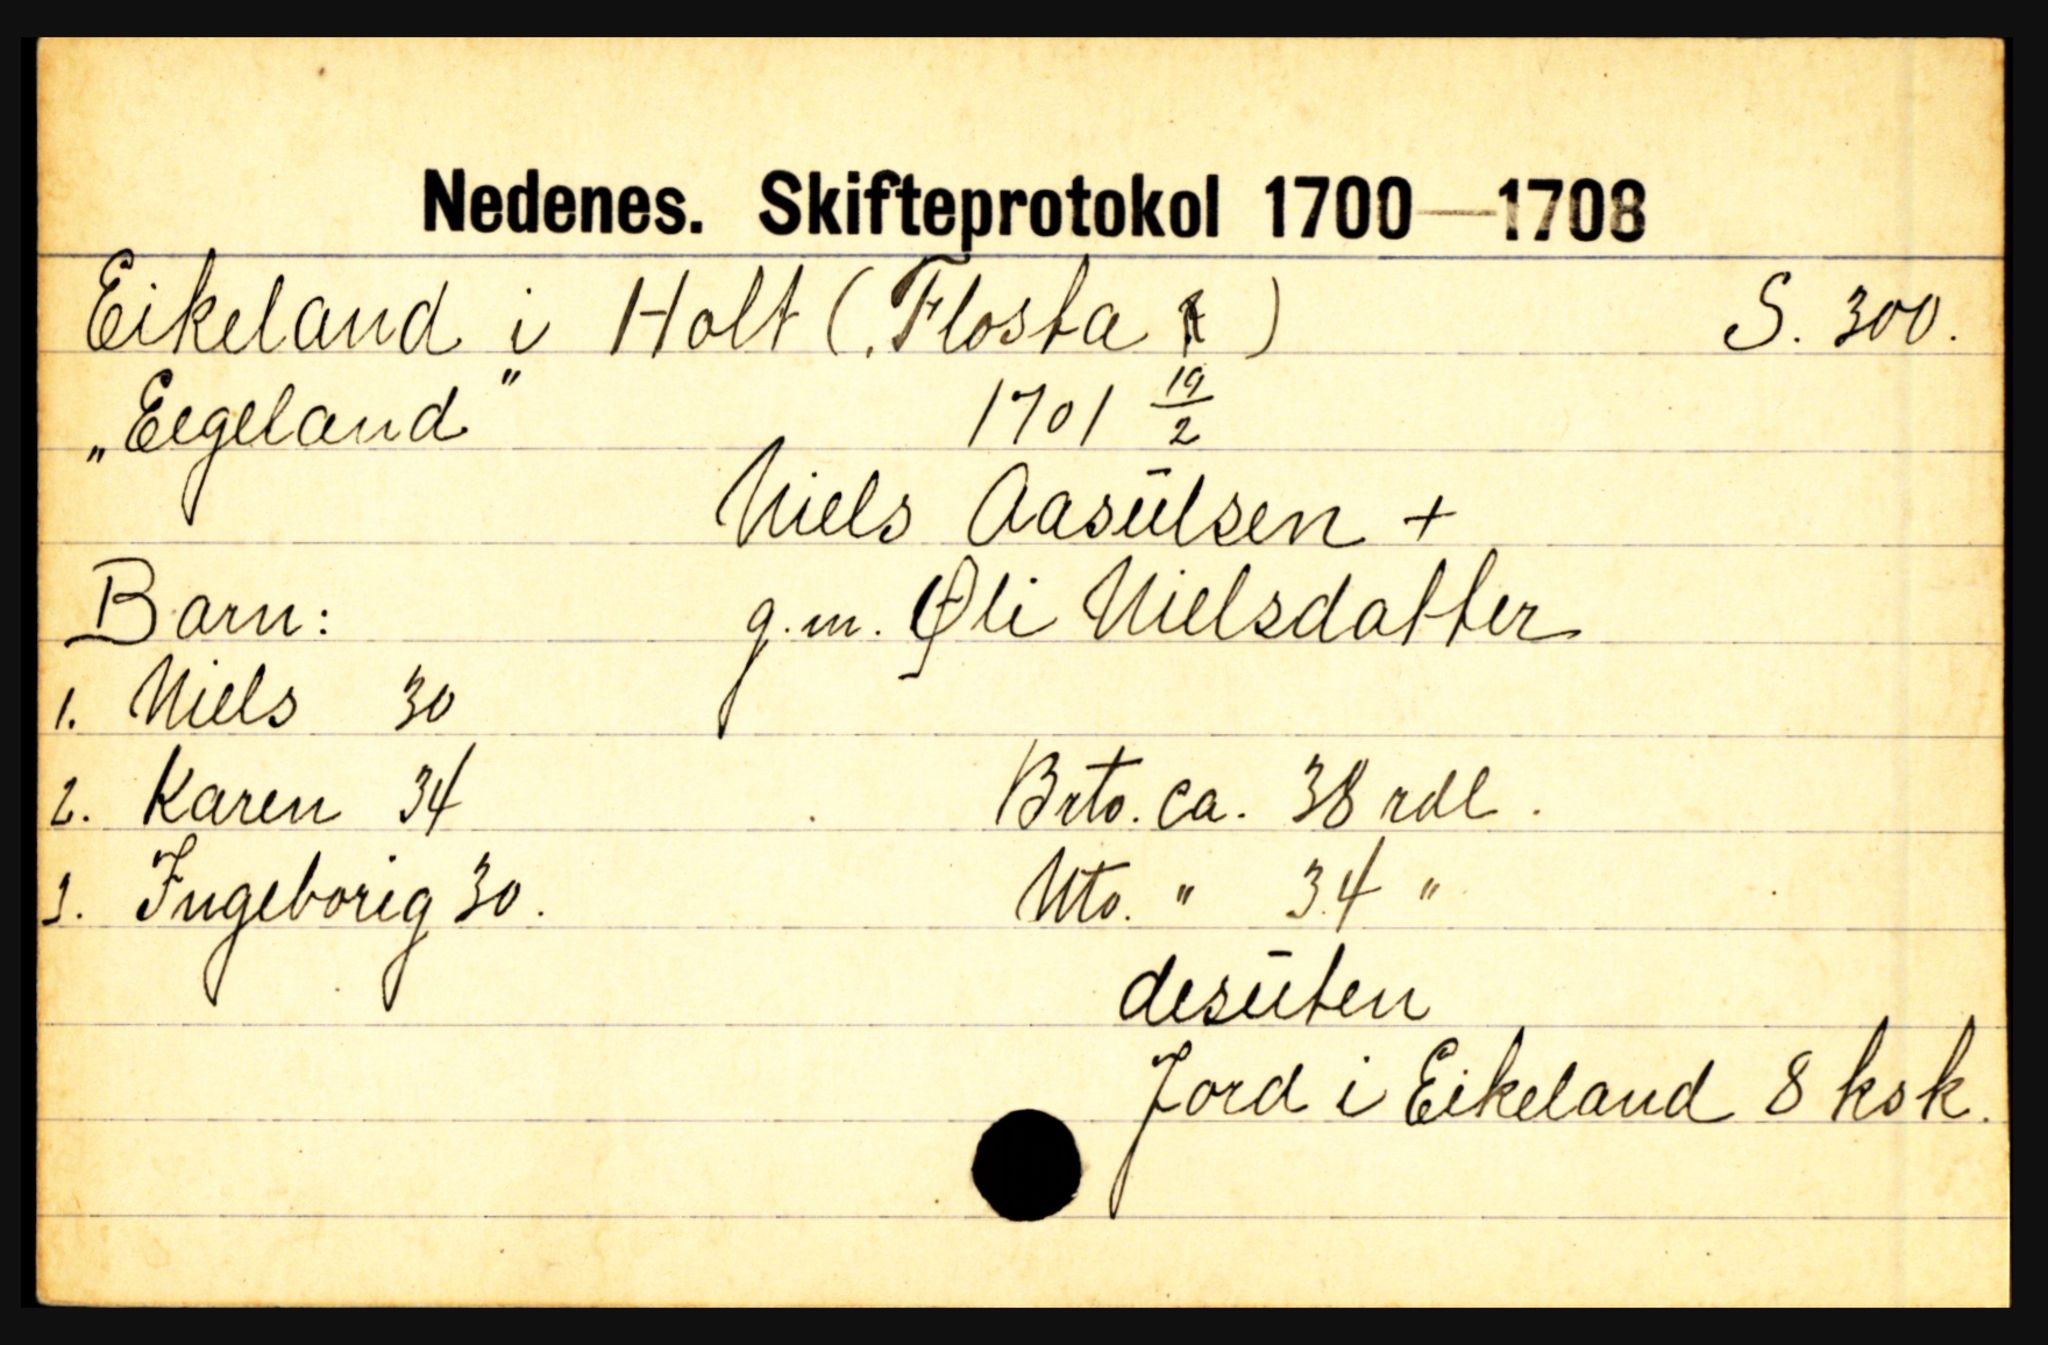 Nedenes. Skifteprotokol 1700—1708
Eikeland i Holt (Flosta ) S. 300.
„Eegeland" 1701 19/2
Niels Aasūlsen +
Barn: g.m. Øli Nielsdatter
1. Niels 30
2. Karen 34 Brto. ca. 38 rdl.
3. Ingeborig 30. Nto. " 34 "
desūten
Jord i Eikeland 8 ksk.